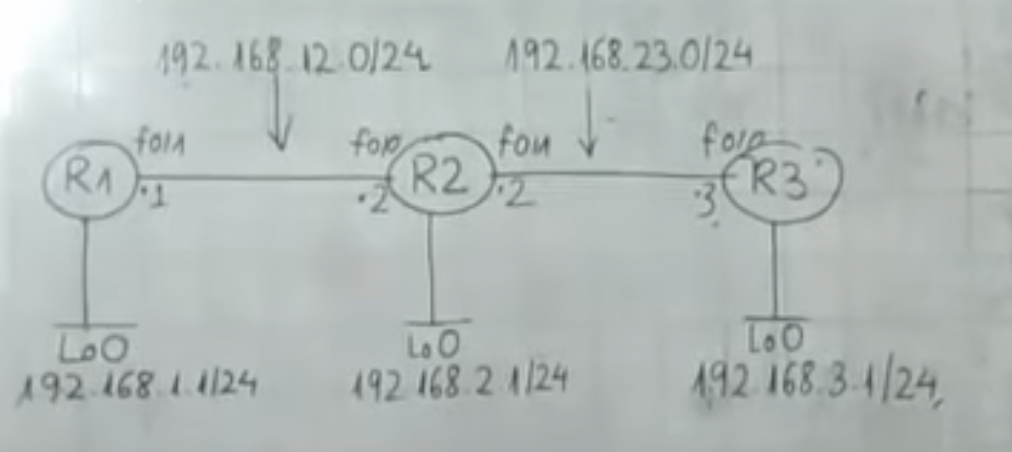 192.168.12.0/24 192.168.23.0/24
f0/1 f0/0 f0/1 f0/0
R1 R2 R3
.1 .2 .2 .3
Lo0 Lo0 Lo0
192.168.1.1/24 192.168.2.1/24 192.168.3.1/24